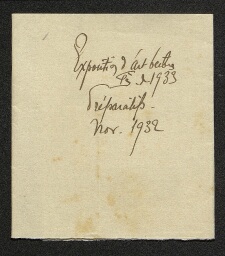 Exposition d'art
de 1933
Préparatifs.
Nov. 1932